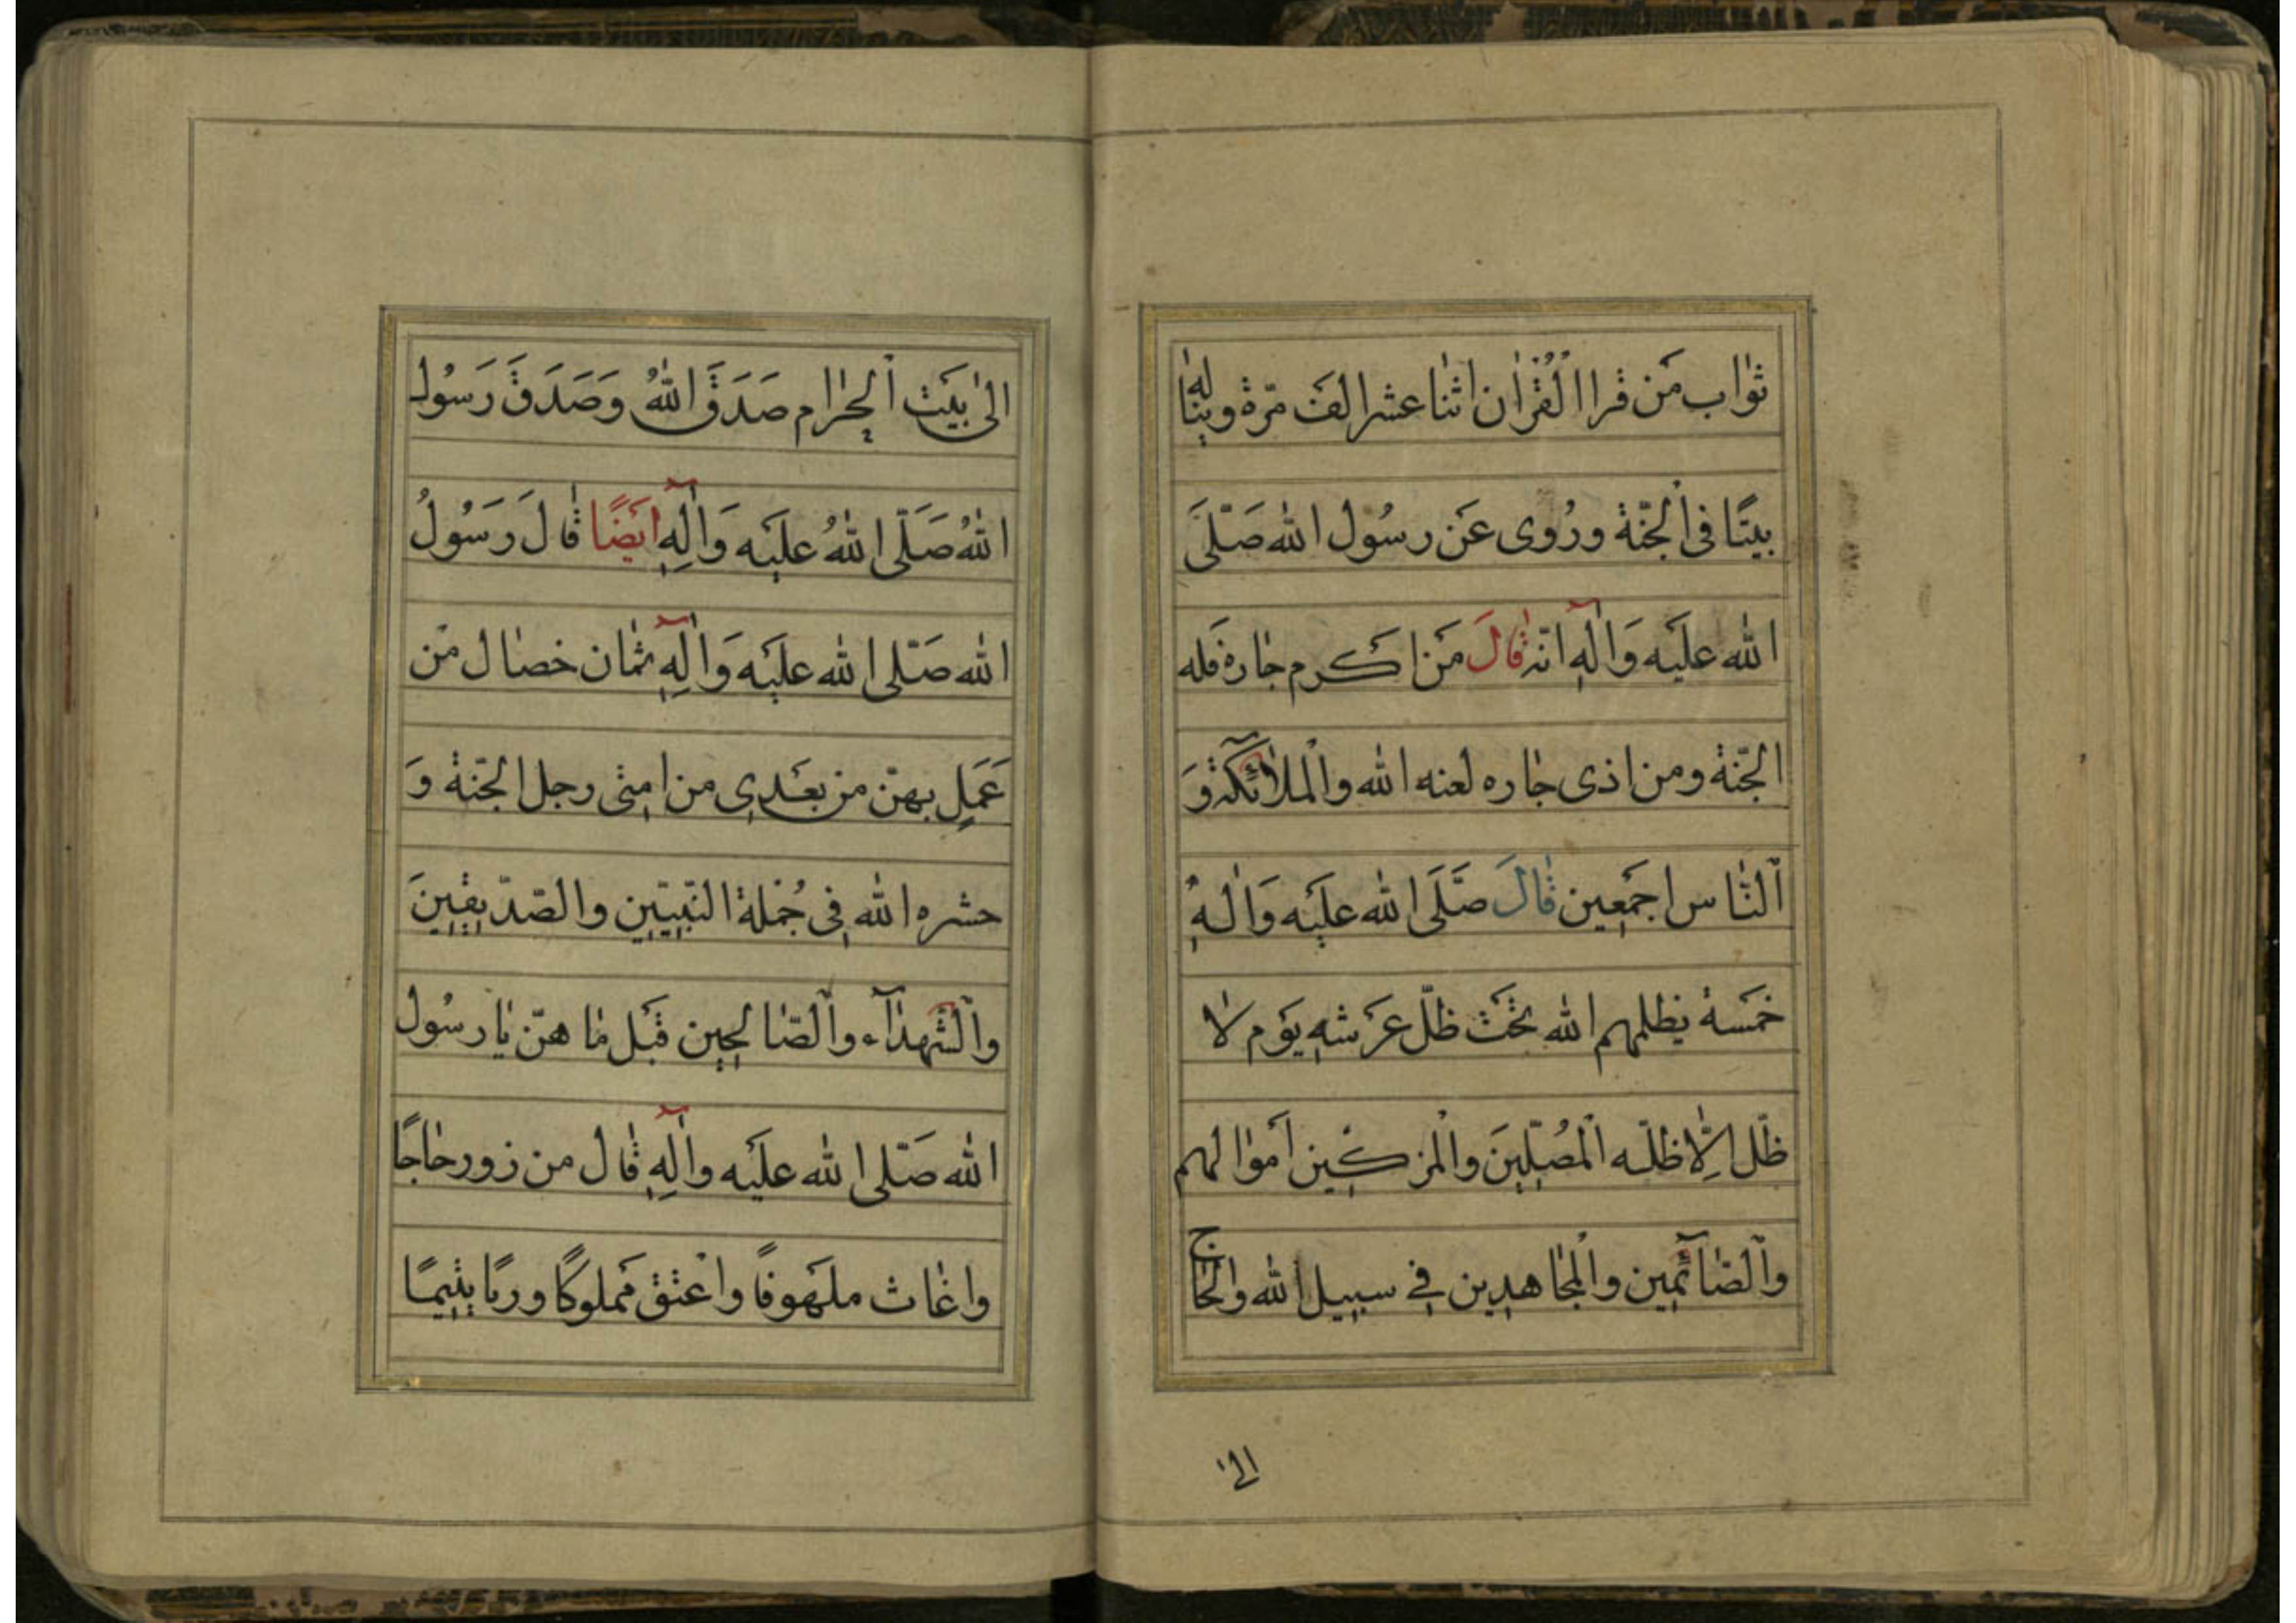 ثواب مَن قرا القُرْان اثنا عشر الف مرّة وبنا له
بيتًا فی الجنّة ورُوی عَن رسُول الله صَلّیَ
الله علیَه وَالِهِ انّه قالَ مَن اكَرم جاره فَله
الجنّة ومن اذی جاره لعنه الله والملائكة وَ
اَلناس اجمَعين قالَ صَلَی الله عليَه وَالهِ
خمَسة يظلهم الله تحَت ظلّ عرَشهِ يوَم لا
ظلّ اِلّا ظلّه المُصَلّينَ والمزكين اَموالهم
واَلصّآئمين والمجاهدين فی سبيل الله والحاج
الی
الی بيَت الحِرام صَدَقَ اللهُ وَصَدَقَ رَسُول
اللهُ صَلّی اللهُ عليَه وَالِهِ ايَضًا قالَ رَسُولُ
الله صَلّی الله عليَه وَالِهِ ثمان خصال مَن
عَمَلِ بهنّ من بعَدی من امتی رجل الجنّة وَ
حشره الله فِی جُملة النّبيّين والصّدّيقينَ
واَلشّهدآء واَلصّالحين قبَل ما هنّ يا رسُول
الله صَلّی الله عليَه والِهِ قال من زور حاجًا
واغاث ملهَوفًا واعتق ممَلوكًا وربّا يتيمًا